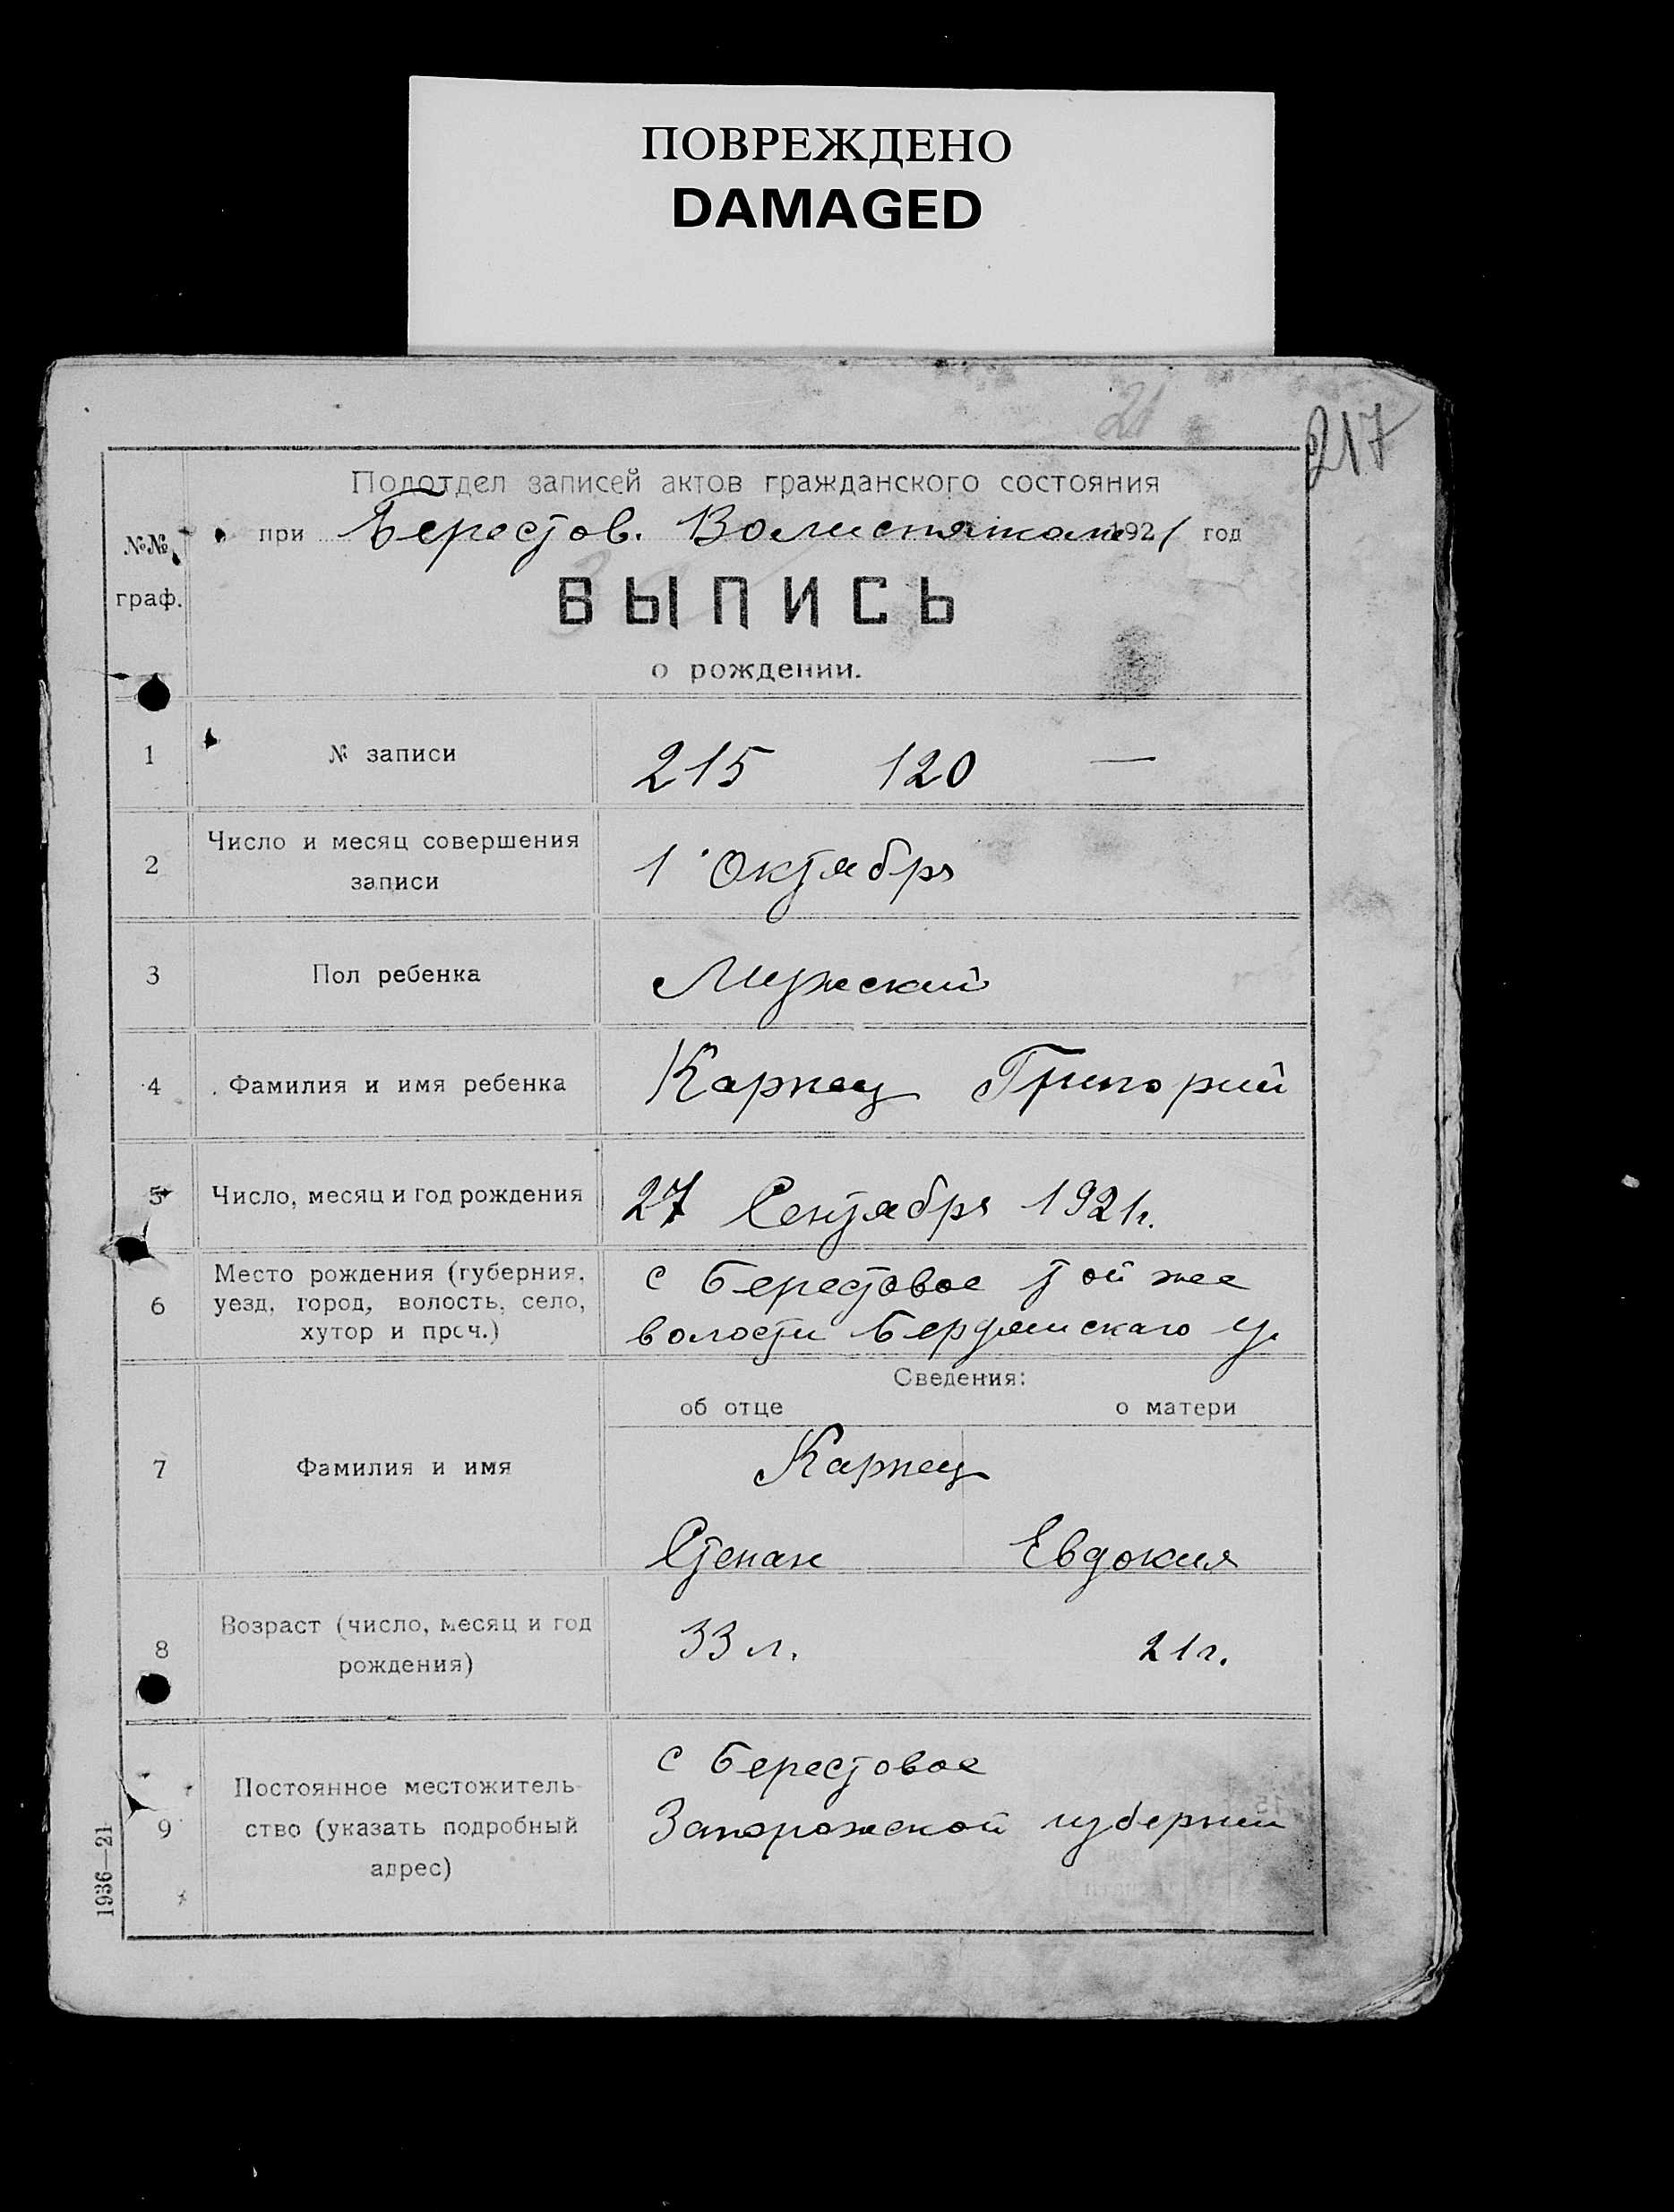 ПОВРЕЖДЕНО
DAMAGED
21
217
Подотдел записей актов гражданского состояния
при Берестов. Волисполкоме 1921 год
№№ граф.
ВЫПИСЬ
о рождении.
1 № записи 215 120 —
2 Число и месяц совершения записи 1 Октября
3 Пол ребенка Мужский
4 Фамилия и имя ребенка Карпец Григорий
5 Число, месяц и год рождения 27 Сентября 1921г.
6 Место рождения (губерния, уезд, город, волость, село, хутор и проч.) с Берестовое той же
волости Бердянскаго у.
Сведения:
об отце о матери
7 Фамилия и имя Карпец
Степан Евдокия
8 Возраст (число, месяц и год рождения) 33 л. 21г.
9 Постоянное местожитель-
ство (указать подробный
адрес)
с Берестовое
Запорожской губернии
1936—21